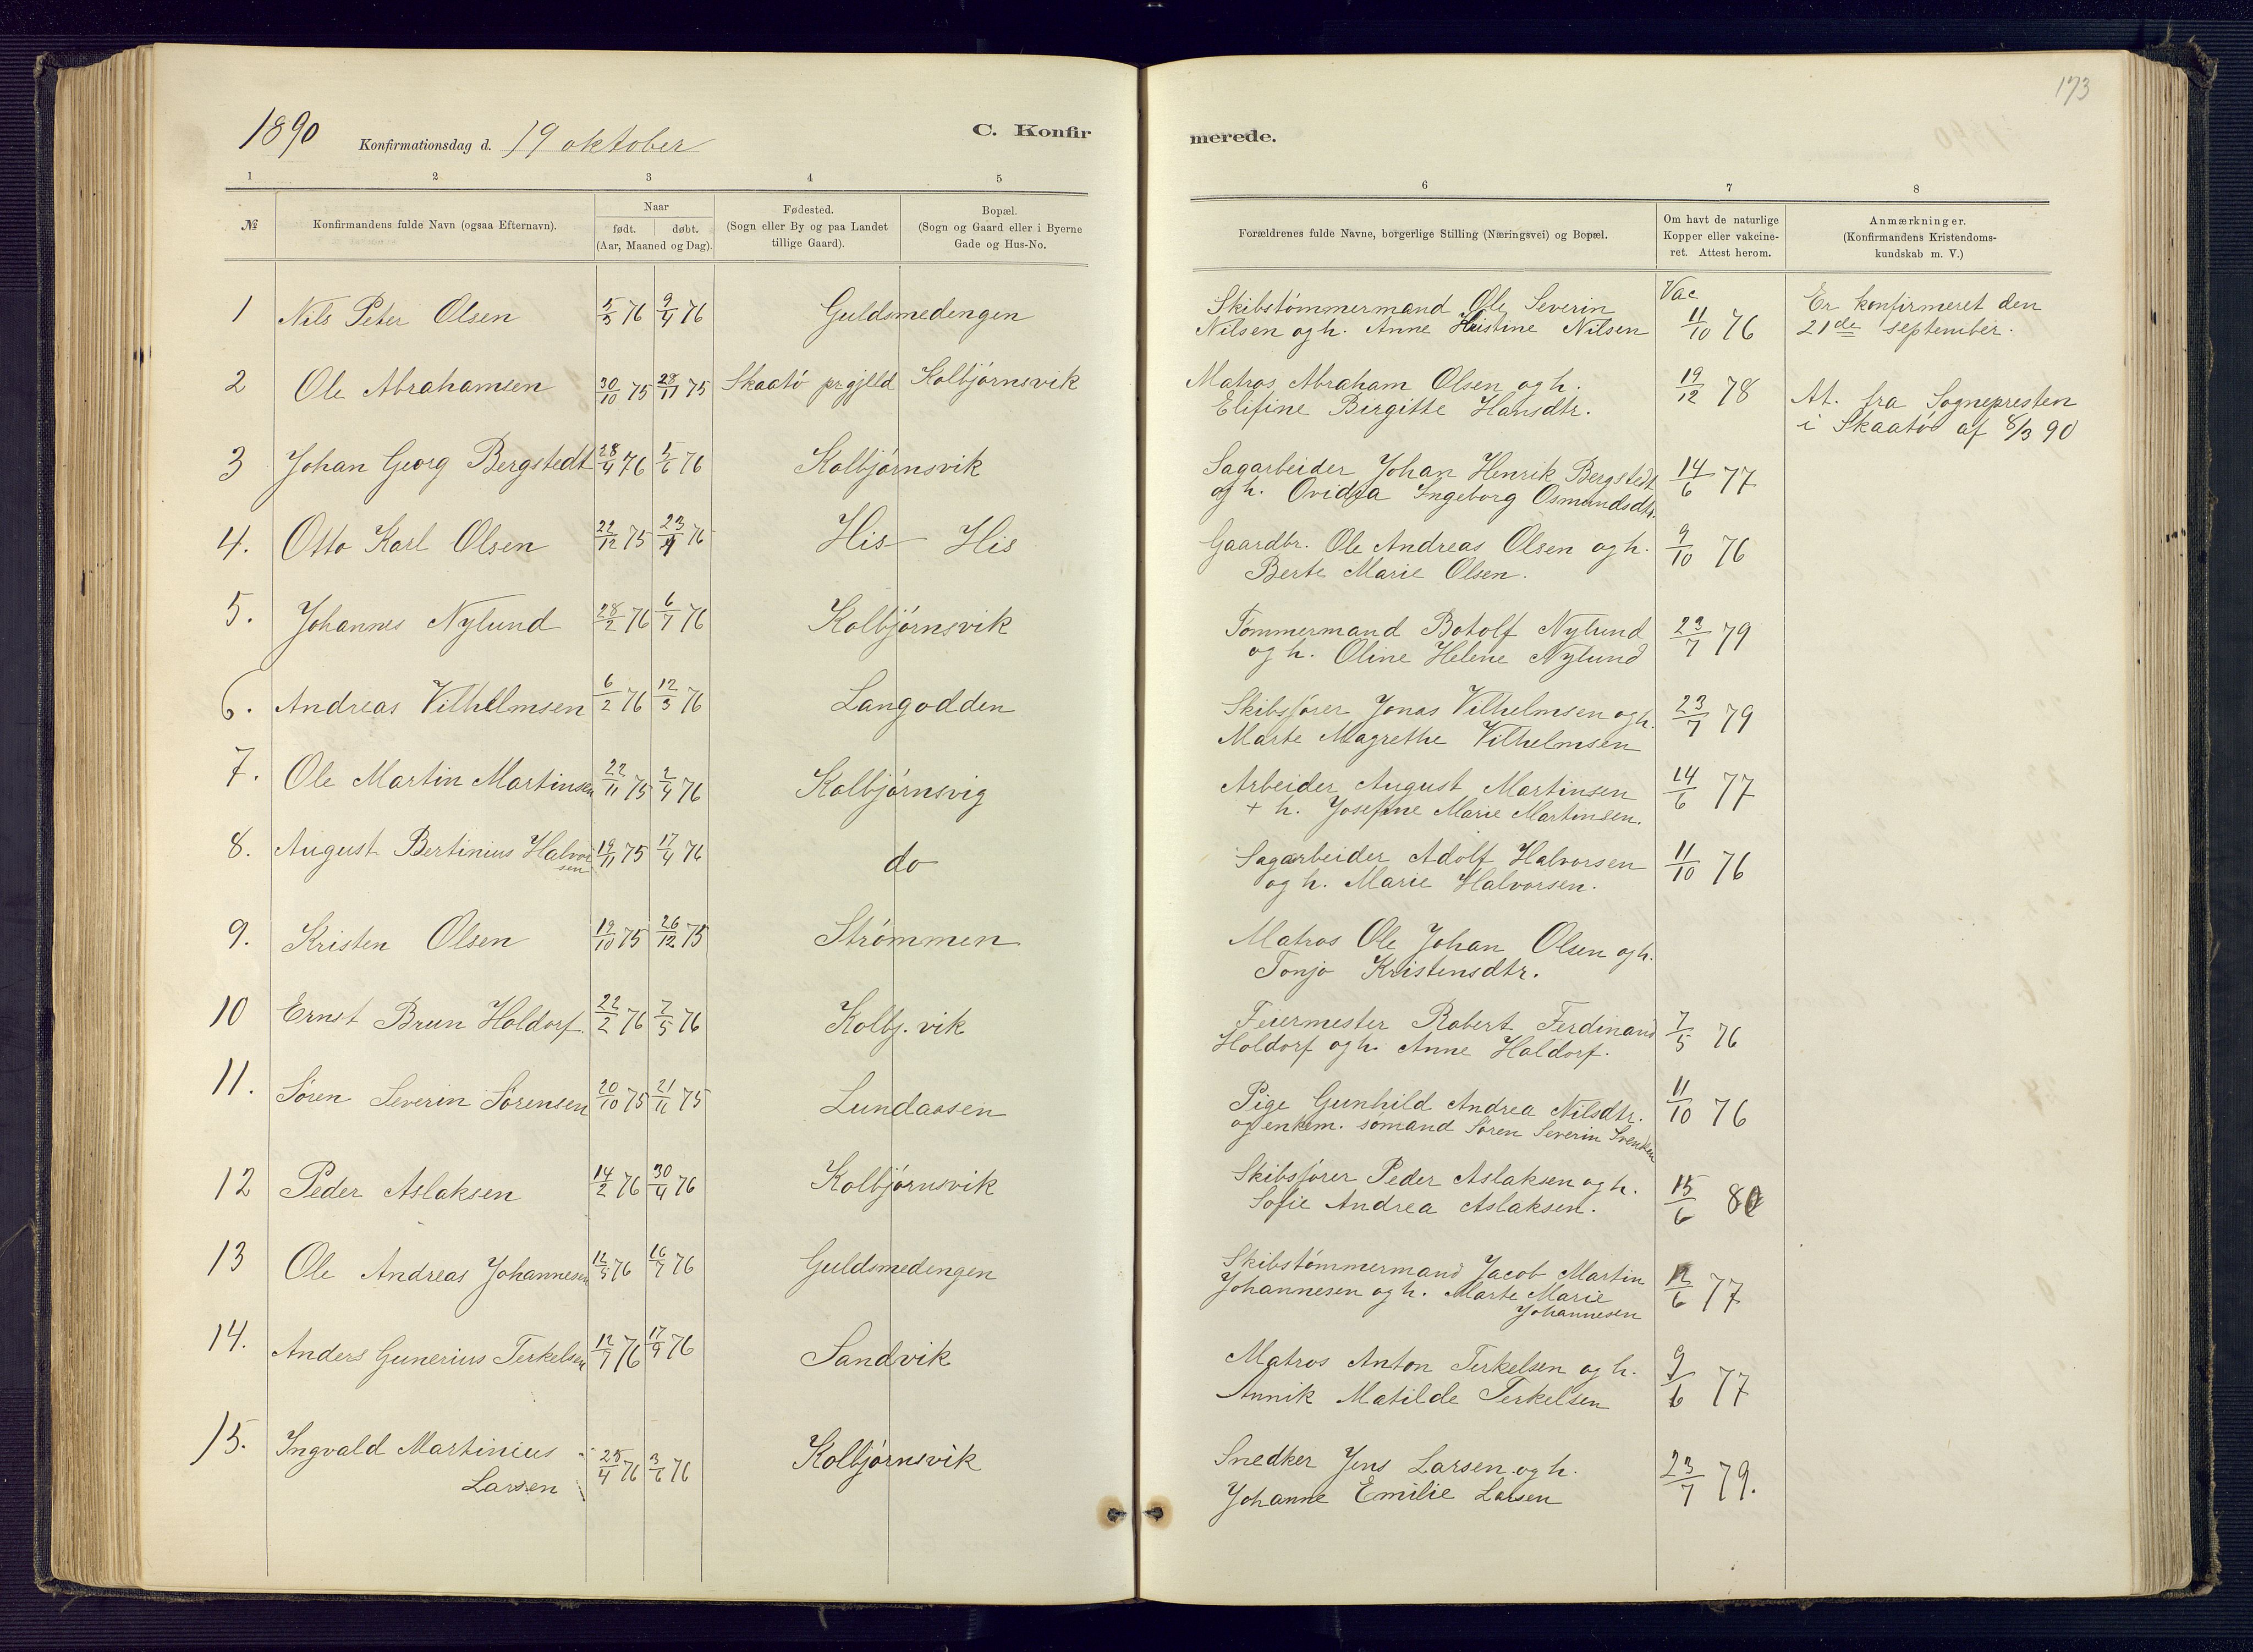 173
1890 Konfirmationsdag d. 19 oktober C. Konfir merede.
1 2 3 4 5 6 7 8
№ Konfirmandens fulde Navn (ogsaa Efternavn). Naar født. døbt. (Aar, Maaned og Dag). Fødested. (Sogn eller By og paa Landet tillige Gaard). Bopæl. (Sogn og Gaard eller i Byerne Gade og Hus-No. Forældrenes fulde Navne, borgerlige Stilling (Næringsvei) og Bopæl. Om havt de naturlige Kopper eller vakcineret. Attest herom. Anmærkninger. (Konfirmandens Kristendomskundskab m. V.)
1 Nils Peter Olsen 5/3 76 9/4 76 Guldsmedengen Skibstømmermand Ole Severin Vac Er konfirmeret den
Nilsen og h. Anne Kristine Nilsen 11/10 76 21de september.
2 Ole Abrahamsen 30/10 75 28/11 75 Skaatø prgjeld Kolbjørnsvik Matros Abraham Olsen og h. 19/12 78 At. fra Sognepresten
Elifine Birgitte Hansdtr. i Skaatø af 8/3 90
3 Johan Georg Bergstedt 28/4 76 5/6 76 Kolbjørnsvik Sagarbeider Johan Henrik Bergstedt 14/6 77
og h. Ovidia Ingeborg Osmundsdtr.
4. Otto Karl Olsen 22/12 75 23/4 76 His His Gaardbr. Ole Andreas Olsen og h. 9/10 76
Berte Marie Olsen.
5. Johannes Nylund 28/2 76 6/7 76 Kolbjørnsvik Tømmermand Botolf Nylund 23/7 79
og h. Oline Helene Nylund
6. Andreas Vilhelmsen 6/2 76 12/3 76 Langodden Skibsfører Jonas Vilhelmsen og h. 23/7 79
Marte Magrethe Vilhelmsen
7. Ole Martin Martinsen 22/11 75 2/4 76 Kolbjørnsvig Arbeider August Martinsen 14/6 77
+ h. Josefine Marie Martinsen.
8. August Bertinius Halvor 19/11 75 17/4 76 do Sagarbeider Adolf Halvorsen 11/10 76
sen og h. Marie Halvorsen.
9. Kristen Olsen 19/10 75 26/12 75 Strømmen Matros Ole Johan Olsen og h.
Tonjo Kristensdtr.
10 Ernst Brun Holdorf. 22/2 76 7/5 76 Kolbj. vik Feiermester Robert Ferdinand 7/5 76
Holdorf og h. Anne Holdorf.
11. Søren Severin Sørensen 20/10 75 21/11 75 Lundaasen Pige Gunhild Andrea Nilsdtr. 11/10 76
og enkem. sømand Søren Severin Svendsen
12 Peder Aslaksen 14/2 76 30/4 76 Kolbjørnsvik Skibsfører Peder Aslaksen og h. 15/6 80
Sofie Andrea Aslaksen.
13 Ole Andreas Johannesen 12/5 76 16/7 76 Guldsmedengen Skibstømmermand Jacob Martin 12/6 77
Johannesen og h. Marte Marie
Johannesen
14. Anders Gunerius Terkelsen 12/7 76 17/9 76 Sandvik Matros Anton Terkelsen og h. 9/6 77
Annik Matilde Terkelsen
15. Ingvald Martinius 25/4 76 3/6 76 Kolbjørnsvik Snedker Jens Larsen og h. 23/7 79.
Larsen Johanne Emilie Larsen